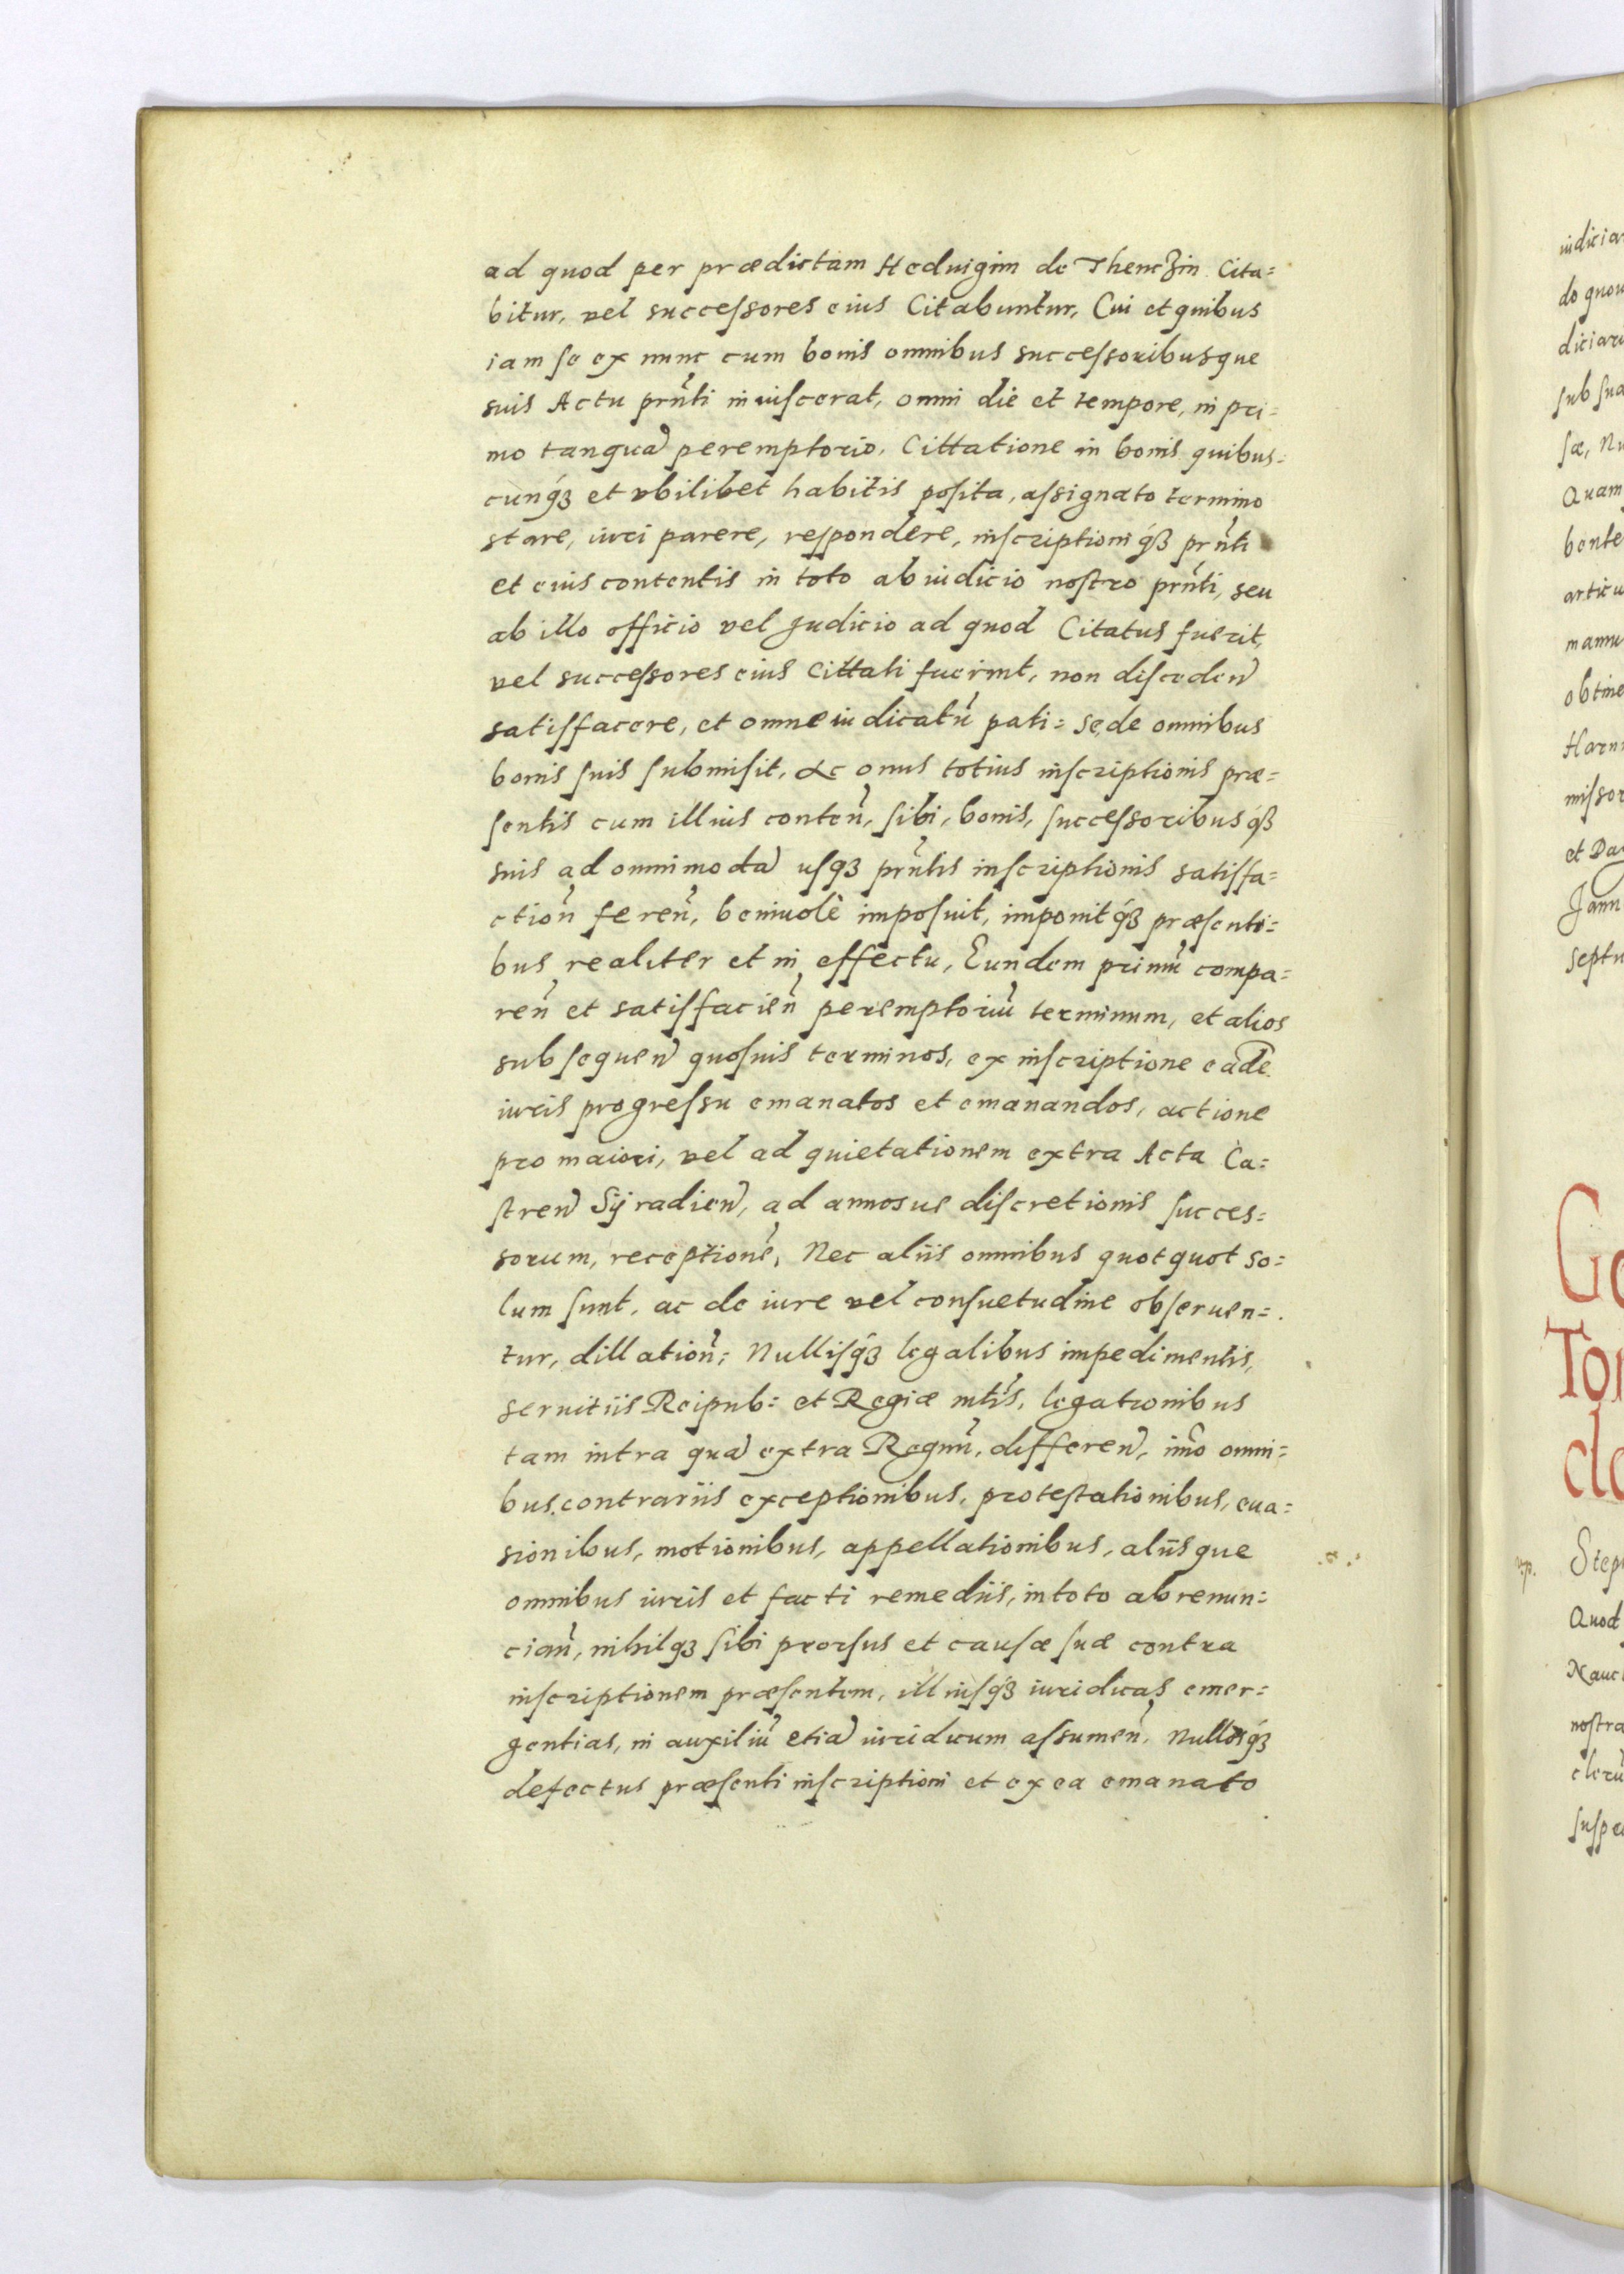 ad quod per prædictam Heduigim de Thenczin Cita=
bitur, vel successores eius Citabuntur, Cui et quibus
iam se ex nunc cum bonis omnibus successoribusque
suis Actu prñti inuiscerat, omni die et tempore, in pri=
mo tanquã peremptorio, Cittatione in bonis quibus=
cunq́ꝫ et vbilibet habitis posita, assignato termino
stare, iuri parere, respondere, inscriptioniq́ꝫ prñti
et eius contentis in toto ab iudicio nostro prñti, seu
ab illo officio vel Judicio ad quod Citatus fuerit,
vel successores eius Cittati fuerint, non discedeñ
satisfacere, et omne iudicatũ pati= se, de omnibus
bonis suis submisit, &c onus totius inscriptionis præ=
sentis cum illius conteñ, sibi, bonis, successoribusq́ꝫ
suis ad omnimodã usqꝫ prñtis inscriptionis satisfa=
ctioñ fereñ, beniuolè imposuit, imponitq́ꝫ præsenti=
bus realiter et in effectu, Eundem primũ compa=
reñ et satisfacieñ peremptoriũ terminum, et alios
subsequeñ quosuis terminos, ex inscriptione eadẽ
iuris progressu emanatos et emanandos, actione
pro maiori, vel ad quietationem extra Acta Ca=
streñ Sÿradieñ, ad annosue discretionis succes=
sorum, receptionẽ, Nec aliis omnibus quotquot so=
lum sunt, ac de iure vel consuetudine obseruen=
tur, dillatioñ; Nullisq́ꝫ legalibus impedimentis,
seruitiis Reipub: et Regiæ mt̃is, legationibus
tam intra quã extra Regnũ, differeñ, im̃o omni=
bus contrariis exceptionibus, protestationibus, eua=
sionibus, motionibus, appellationibus, aliisque
omnibus iuris et facti remediis, in toto abrenun=
ciañ, nihilqꝫ sibi prorsus et causæ suæ contra
inscriptionem præsentem, illiusq́ꝫ iuridicas emer=
gentias, in auxiliũ etiã iuridicum assumeñ, Nullosq́ꝫ
defectus præsenti inscriptioni et ex ea emanato